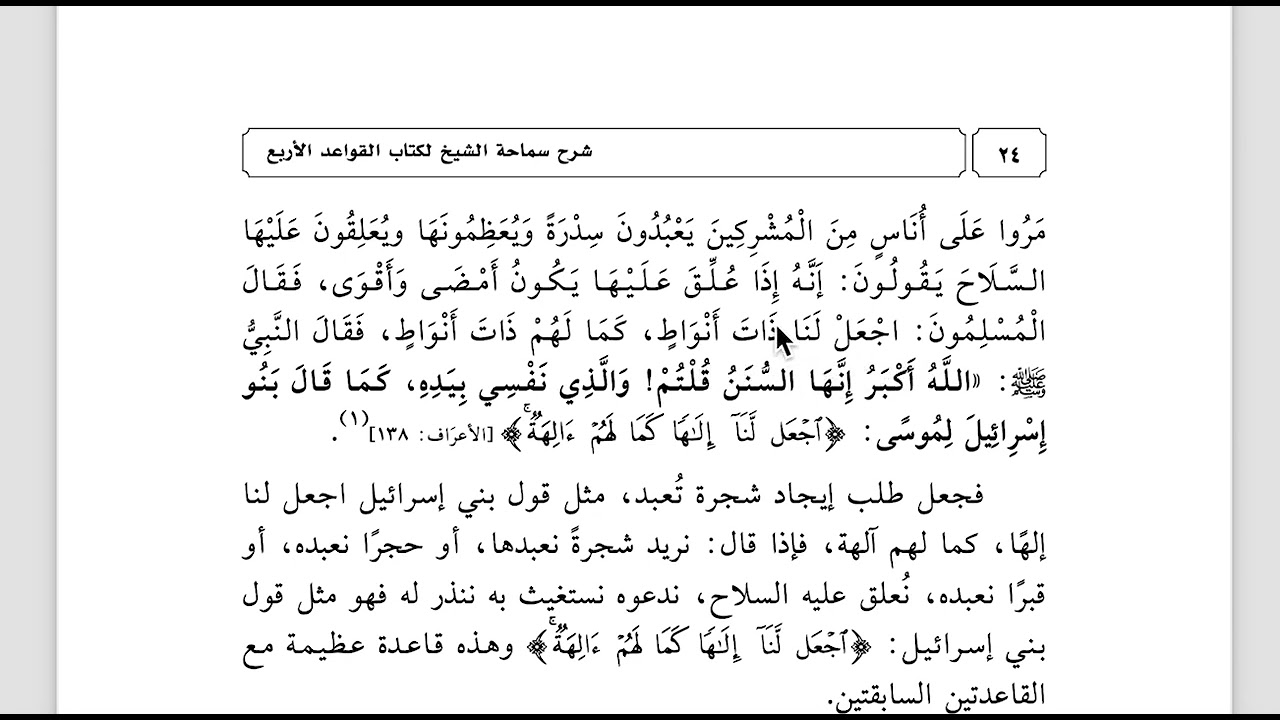 ٢٤ شرح سماحة الشيخ لكتاب القواعد الأربع
مَرُوا عَلَى أُنَاسٍ مِنَ الْمُشْرِكِينَ يَعْبُدُونَ سِدْرَةً وَيُعَظِمُونَهَا ويُعَلِقُونَ عَلَيْهَا
السَّلَاحَ يَقُولُونَ: إِنَّهُ إِذَا عُلِّقَ عَلَيْهَا يَكُونُ أَمْضَى وَأَقْوَى، فَقَالَ
الْمُسْلِمُونَ: اجْعَلْ لَنَا ذَاتَ أَنْوَاطٍ، كَمَا لَهُمْ ذَاتَ أَنْوَاطٍ، فَقَالَ النَّبِيُّ
ﷺ: «اللَّهُ أَكْبَرُ إِنَّهَا السُّنَنُ قُلْتُمْ! وَالَّذِي نَفْسِي بِيَدِهِ، كَمَا قَالَ بَنُو
إِسْرِائِيلَ لِمُوسًى: ﴿ٱجۡعَل لَّنَآ إِلَٰهٗا كَمَا لَهُمۡ ءَالِهَةٞۚ﴾ [الأعرَاف: ١٣٨]»(١).
فجعل طلب إيجاد شجرة تُعبد، مثل قول بني إسرائيل اجعل لنا
إلهًا، كما لهم آلهة، فإذا قال: نريد شجرةً نعبدها، أو حجرًا نعبده، أو
قبرًا نعبده، نُعلق عليه السلاح، ندعوه نستغيث به ننذر له فهو مثل قول
بني إسرائيل: ﴿ٱجۡعَل لَّنَآ إِلَٰهٗا كَمَا لَهُمۡ ءَالِهَةٞۚ﴾ وهذه قاعدة عظيمة مع
القاعدتين السابقتين.